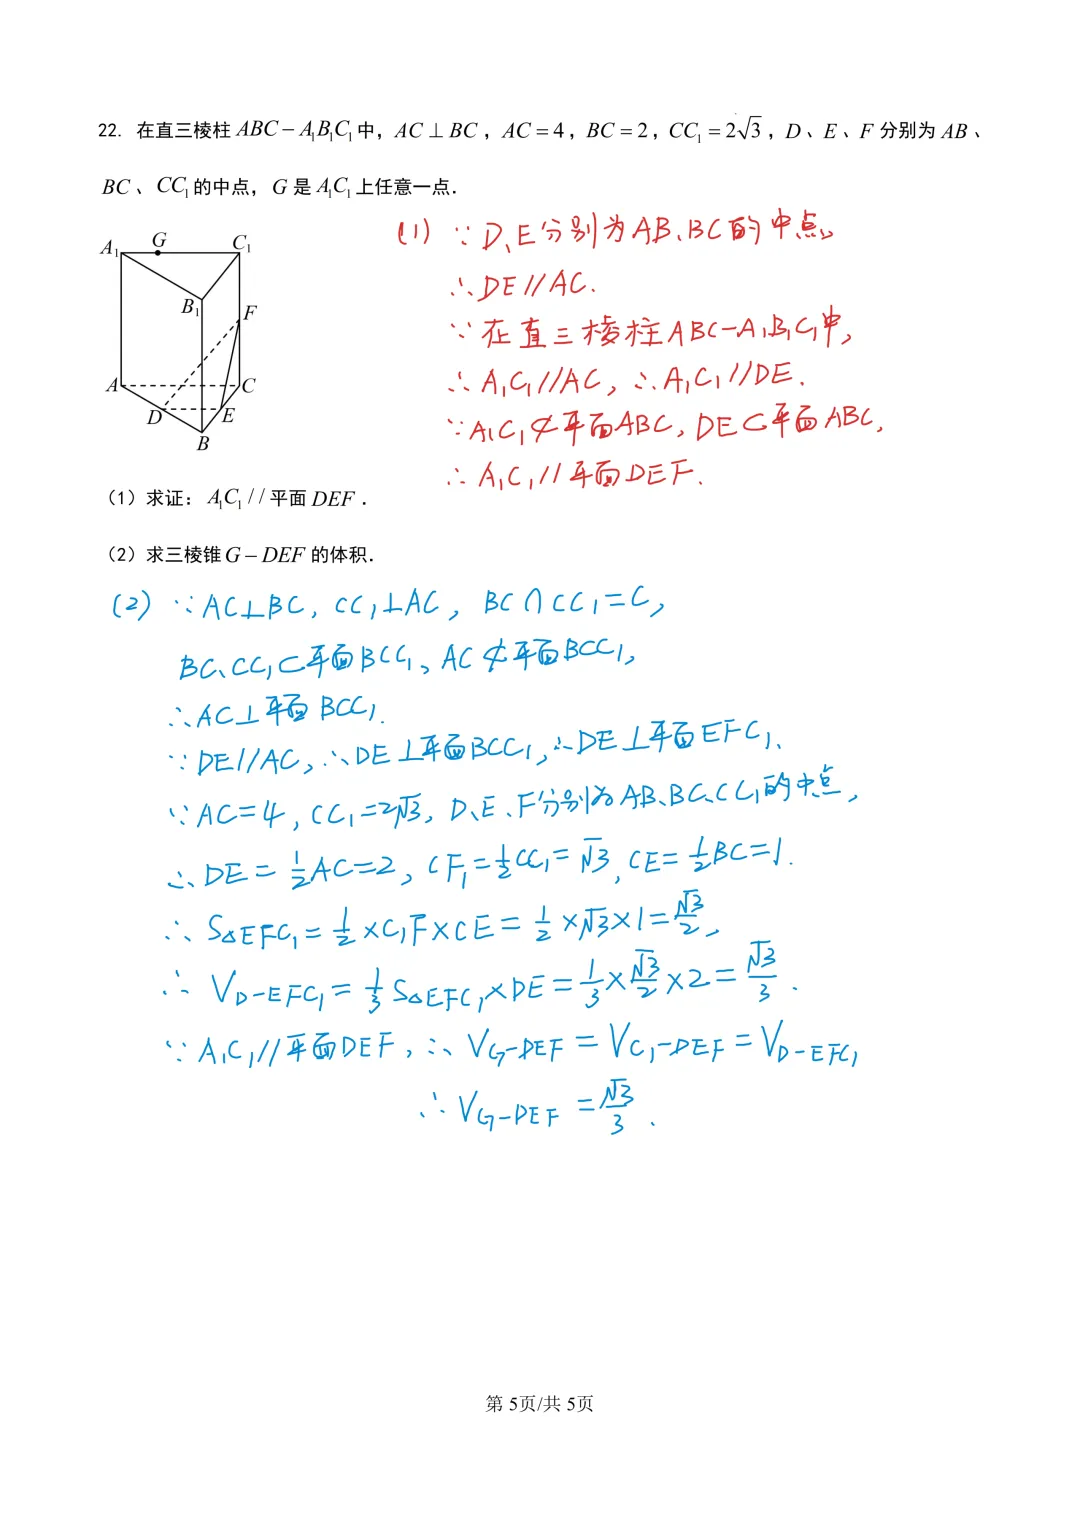 22. 在直三棱柱 ABC－A₁B₁C₁ 中，AC⊥BC，AC=4，BC=2，CC₁=2√3，D、E、F 分别为 AB、
BC、CC₁ 的中点，G 是 A₁C₁ 上任意一点．
A₁ G C₁
B₁ F
A C
D E
B
(1) ∵D、E分别为AB、BC的中点。
∴DE//AC.
∵在直三棱柱ABC-A₁B₁C₁中,
∴A₁C₁//AC, ∴A₁C₁//DE.
∵A₁C₁⊄平面ABC, DE⊂平面ABC,
∴A₁C₁//平面DEF.
（1）求证：A₁C₁//平面 DEF．
（2）求三棱锥 G－DEF 的体积．
(2) ∵AC⊥BC, CC₁⊥AC, BC∩CC₁=C,
BC、CC₁⊂平面BCC₁, AC⊄平面BCC₁,
∴AC⊥平面BCC₁.
∵DE//AC, ∴DE⊥平面BCC₁, ∴DE⊥平面EFC₁.
∵AC=4, CC₁=2√3, D、E、F分别为AB、BC、CC₁的中点,
∴DE=½AC=2, CF₁=½CC₁=√3, CE=½BC=1.
∴S△EFC₁=½×C₁F×CE=½×√3×1=√3/2,
∴V_D-EFC₁=⅓S△EFC₁×DE=⅓×√3/2×2=√3/3.
∵A₁C₁//平面DEF, ∴V_G-DEF=V_C₁-DEF=V_D-EFC₁
∴V_G-DEF=√3/3.
第 5页/共 5页